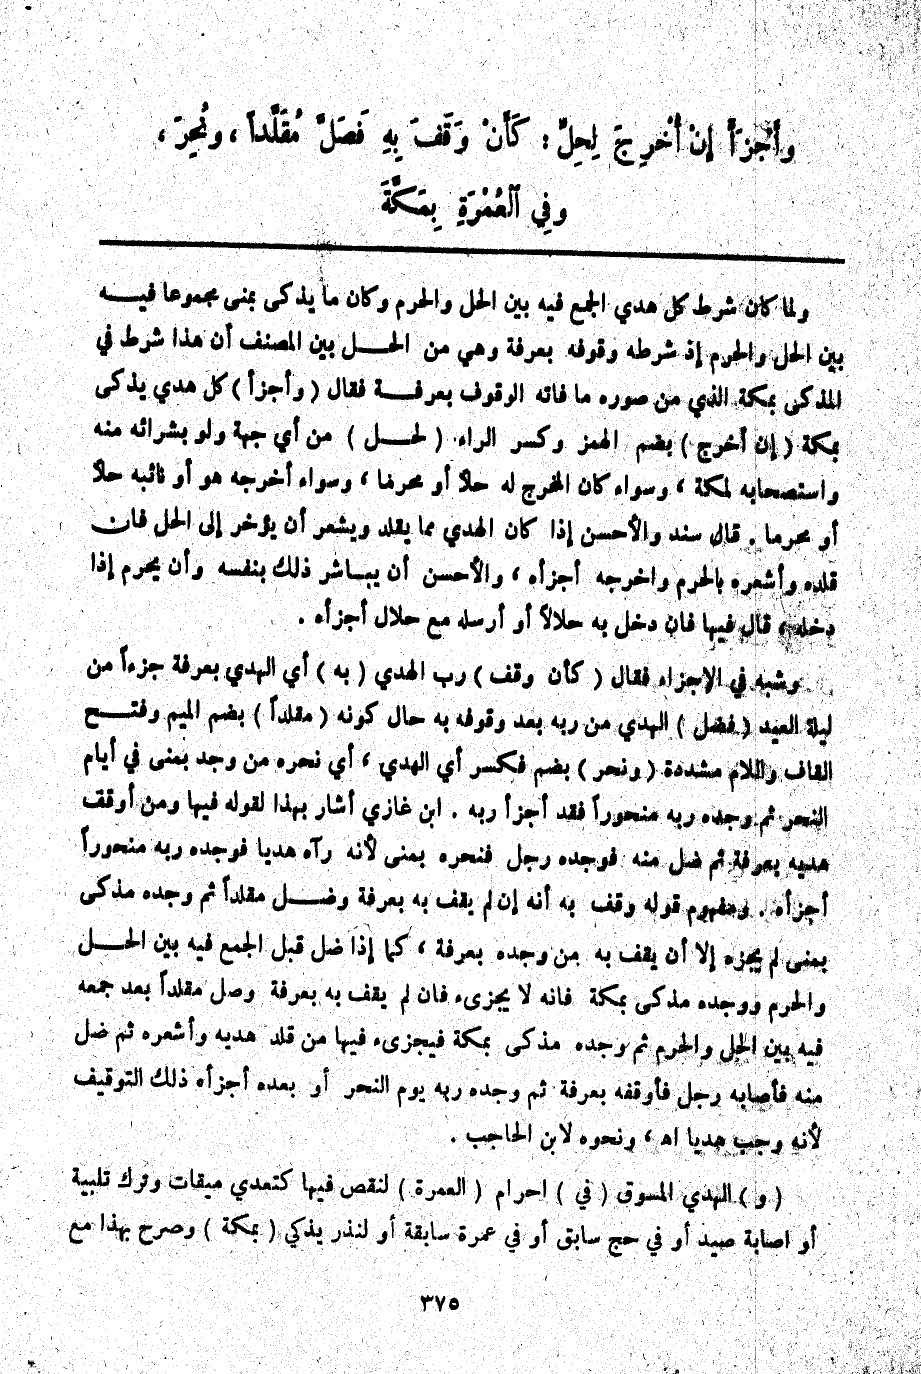 وأَجْزَأَ إِنْ أُخْرِجَ لِحِلٍّ : كَأَنْ وَقَفَ بِهِ فَضَلَّ مُقَلَّداً ، ونُحِرَ ،
وفِي ٱلْعُمْرَةِ بِمَكَّةَ
ولما كان شرط كل هدي الجمع فيه بين الحل والحرم وكان ما يذكى بمنى مجموعا فيـــه
بين الحل والحرم إذ شرطه وقوفه بعرفة وهي من الحـــل بين المصنف أن هذا شرط في
المذكى بمكة الذي من صوره ما فاته الوقوف بعرفـــة فقال ( وأجزأ ) كل هدي يذكى
بمكة ( إن أخرج ) بضم الهمز وكسر الراء ( لحـــل ) من أي جهة ولو بشرائه منه
واستصحابه لمكة ، وسواء كان المخرج له حلاً أو محرما ، وسواء أخرجه هو أو نائبه حلاً
أو محرما . قال سند والأحسن إذا كان الهدي مما يقلد ويشعر أن يؤخر إلى الحل فان
قلده وأشعره بالحرم واخرجه أجزأه ، والأحسن أن يبـاشر ذلك بنفسه وأن يحرم إذا
دخله ، قال فيها فان دخل به حلالاً أو أرسله مع حلال أجزأه .
وشبه في الاجزاء فقال ( كأن وقف ) رب الهدي ( به ) أي الهدي بعرفة جزءاً من
ليلة العيد ( فضل ) الهدي من ربه بعد وقوفه به حال كونه ( مقلداً ) بضم الميم وفتـــح
القاف واللام مشددة ( ونحر ) بضم فكسر أي الهدي ، أي نحره من وجد بمنى في أيام
النحر ثم وجده ربه منحوراً فقد أجزأ ربه . ابن غازي أشار بهذا لقوله فيها ومن أوقف
هديه بعرفة ثم ضل منه فوجده رجل فنحره بمنى لأنه رآه هديا فوجده ربه منحوراً
أجزأه . ومفهوم قوله وقف به أنه إن لم يقف به بعرفة وضـــل مقلداً ثم وجده مذكى
بمنى لم يجزه إلا أن يقف به من وجده بعرفة ، كما إذا ضل قبل الجمع فيه بين الحـــل
والحرم ووجده مذكى بمكة فانه لا يجزىء فان لم يقف به بعرفة وصل مقلداً بعد جمعه
فيه بين الحل والحرم ثم وجده مذكى بمكة فيجزىء فيها من قلد هديه وأشعره ثم ضل
منه فأصابه رجل فأوقفه بعرفة ثم وجده ربه يوم النحر أو بعده أجزأه ذلك التوقيف
لأنه وجب هديا اه ، ونحوه لابن الحاجب .
( و ) الهدي المسوق ( في ) احرام ( العمرة ) لنقص فيها كتعدي ميقات وترك تلبية
أو اصابة صيد أو في حج سابق أو في عمرة سابقة أو لنذر يذكي ( بمكة ) وصرح بهذا مع
٣٧٥